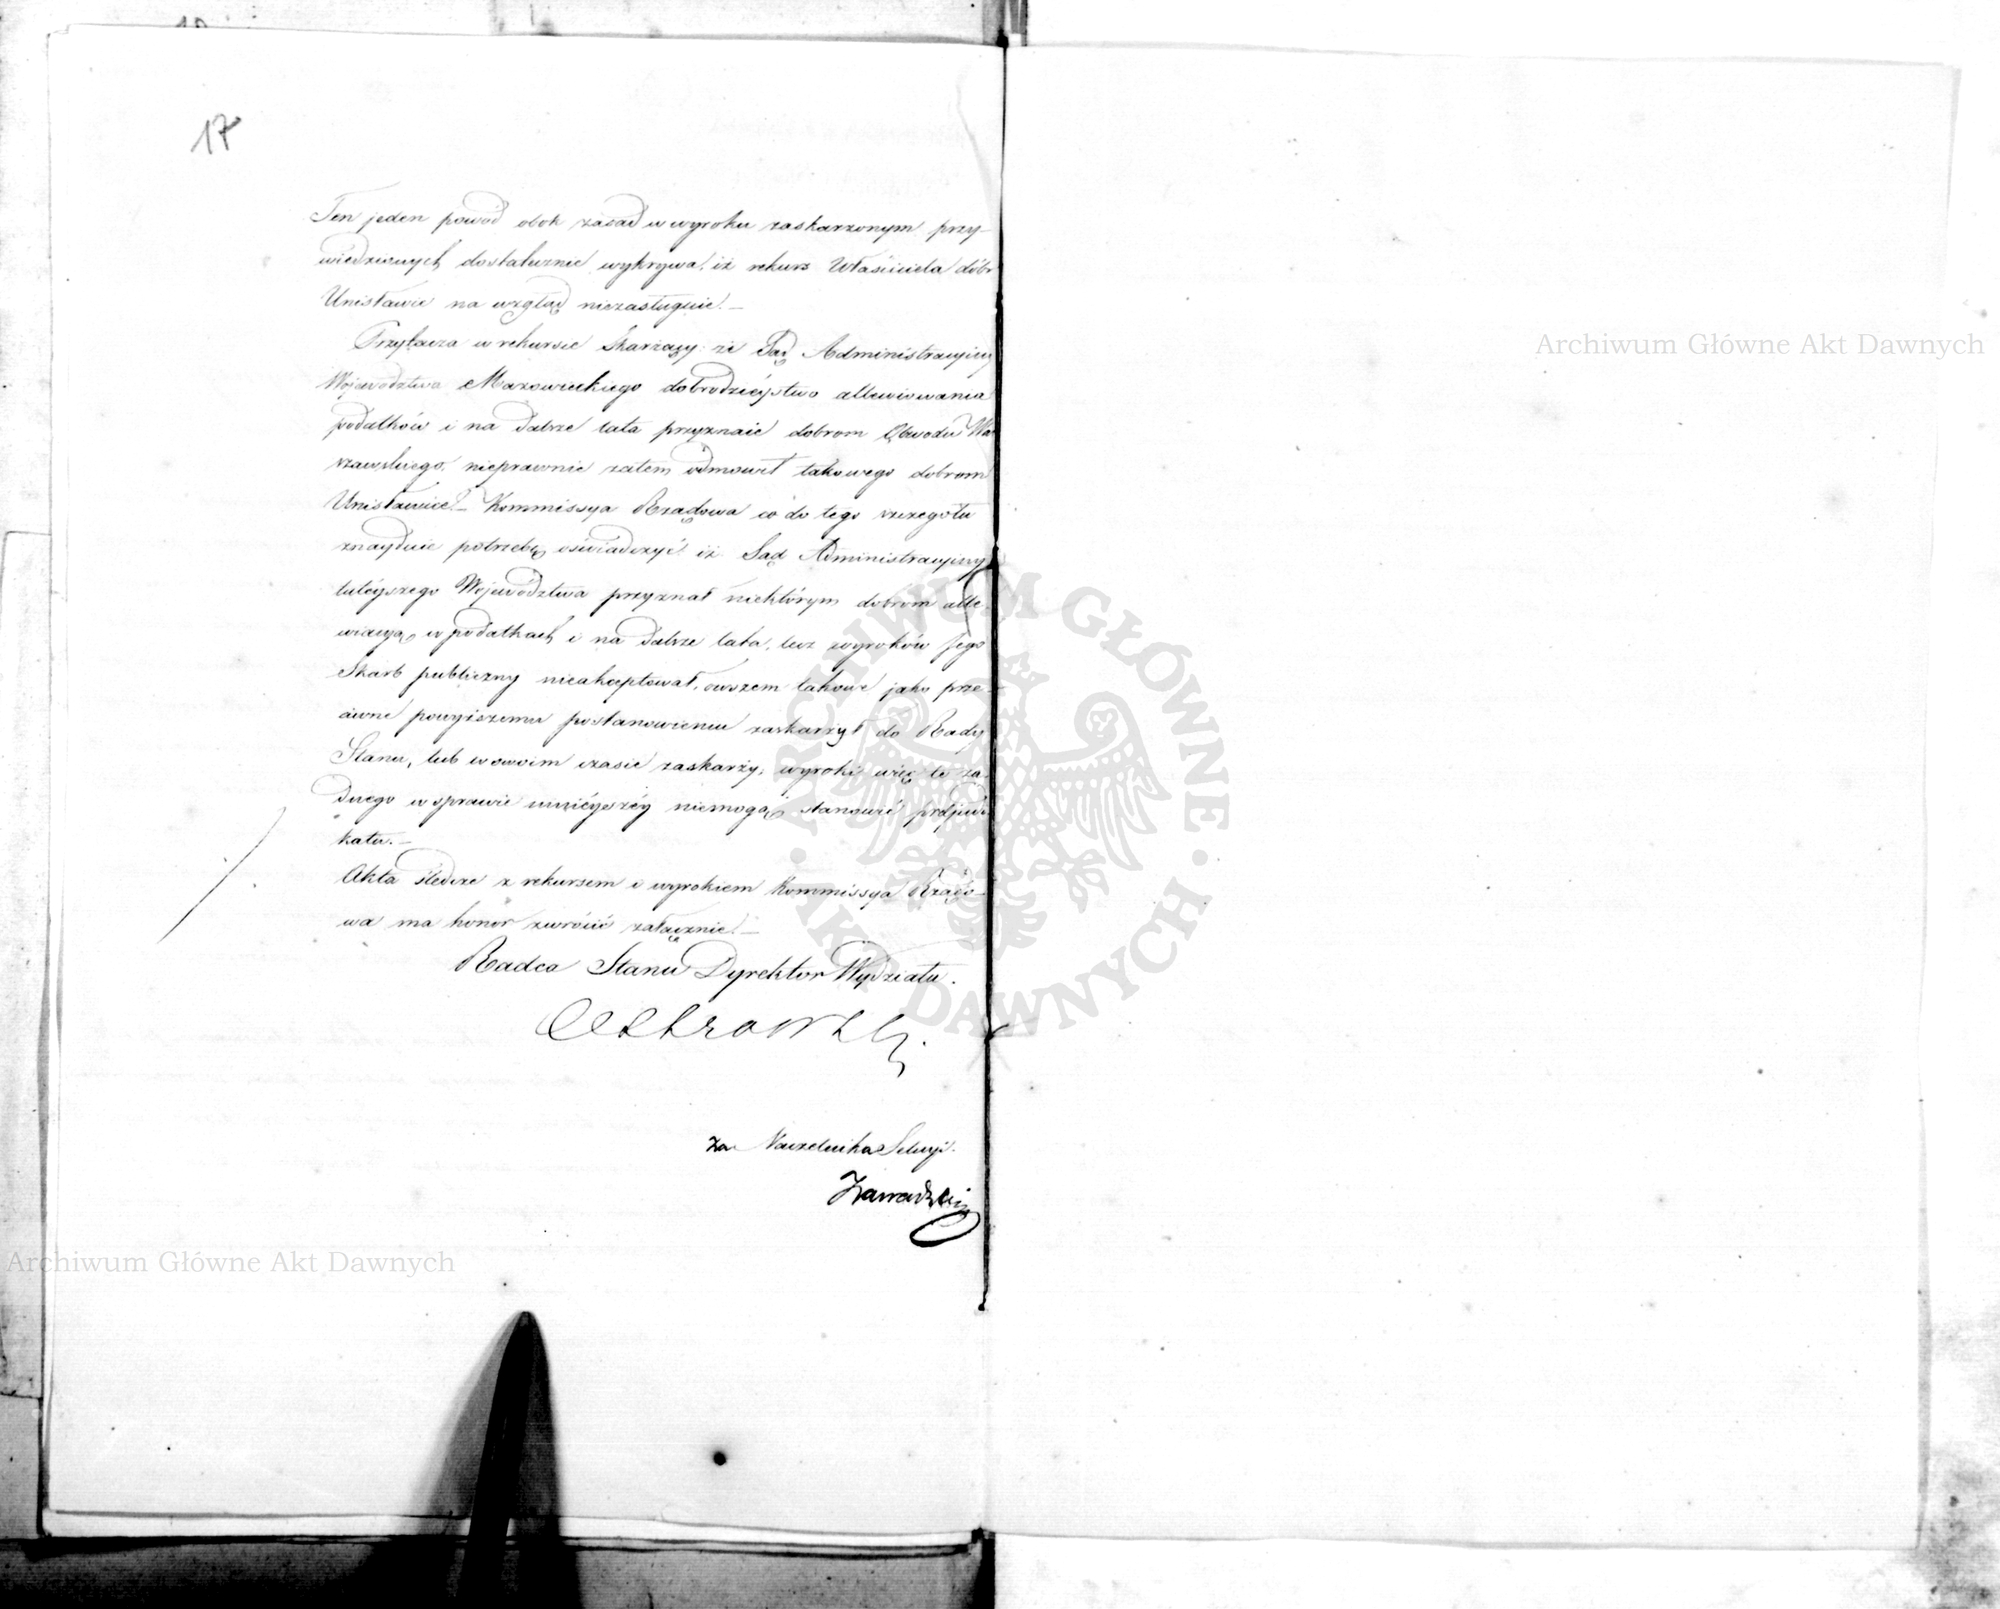 17
Ten jeden powód obok zasad w wyroku zaskarzonym przy-
wiedzionych dostatecznie wykrywa, iż rekurs Właściciela dóbr
Unisławic na wzgląd niezasługuie.—
Przytacza w rekursie Skarżący że Sąd Administracyiny
Województwa Mazowieckiego dobrodzieystwo allewiowania
podatków i na dalsze lata przyznaie dobrom Obwodu War
szawskiego, nieprawnie zatem odmowił takowego dobrom
Unisławice.— Kommissya Rządowa co do tego szczegołu
znayduie potrzebę oświadczyć iż Sąd Administracyiny
tuteyszego Województwa przyznał niektórym dobrom alle-
wiacyą w podatkach i na dalsze lata, lecz wyroków Jego
Skarb publiczny nieakceptował, owszem takowe jako prze-
ciwne powyższemu postanowieniu zaskarżył do Rady
Stanu, lub w swoim czasie zaskarży, wyroki więc te ża-
dnego w sprawie ninieyszéy niemogą stanowić prejudi
katu.—
Akta śledcze z rekursem i wyrokiem Kommissya Rządo-
wa ma honor zwrócić załącznie.—
Radca Stanu Dyrektor Wydziału.
za Naczelnika Sekcyi.
Zawadzki
Archiwum Główne Akt Dawnych
Archiwum Główne Akt Dawnych
ARCHIWUM GŁÓWNE
AKT DAWNYCH